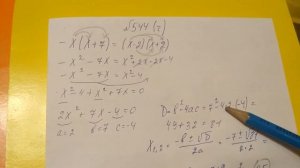 №544 (г)
-x(x+7) = (x-2)(x+2)
-x²-7x = x²+2x-2x-4
-x²-7x = x²-4
x²-4+x²+7x=0
2x²+7x-4=0
a=2 b=7 c=-4
D=b²-4ac=7²-4·2·(-4)=
49+32=81
x₁,₂ = -b±√D/2a = -7±√81/2·2